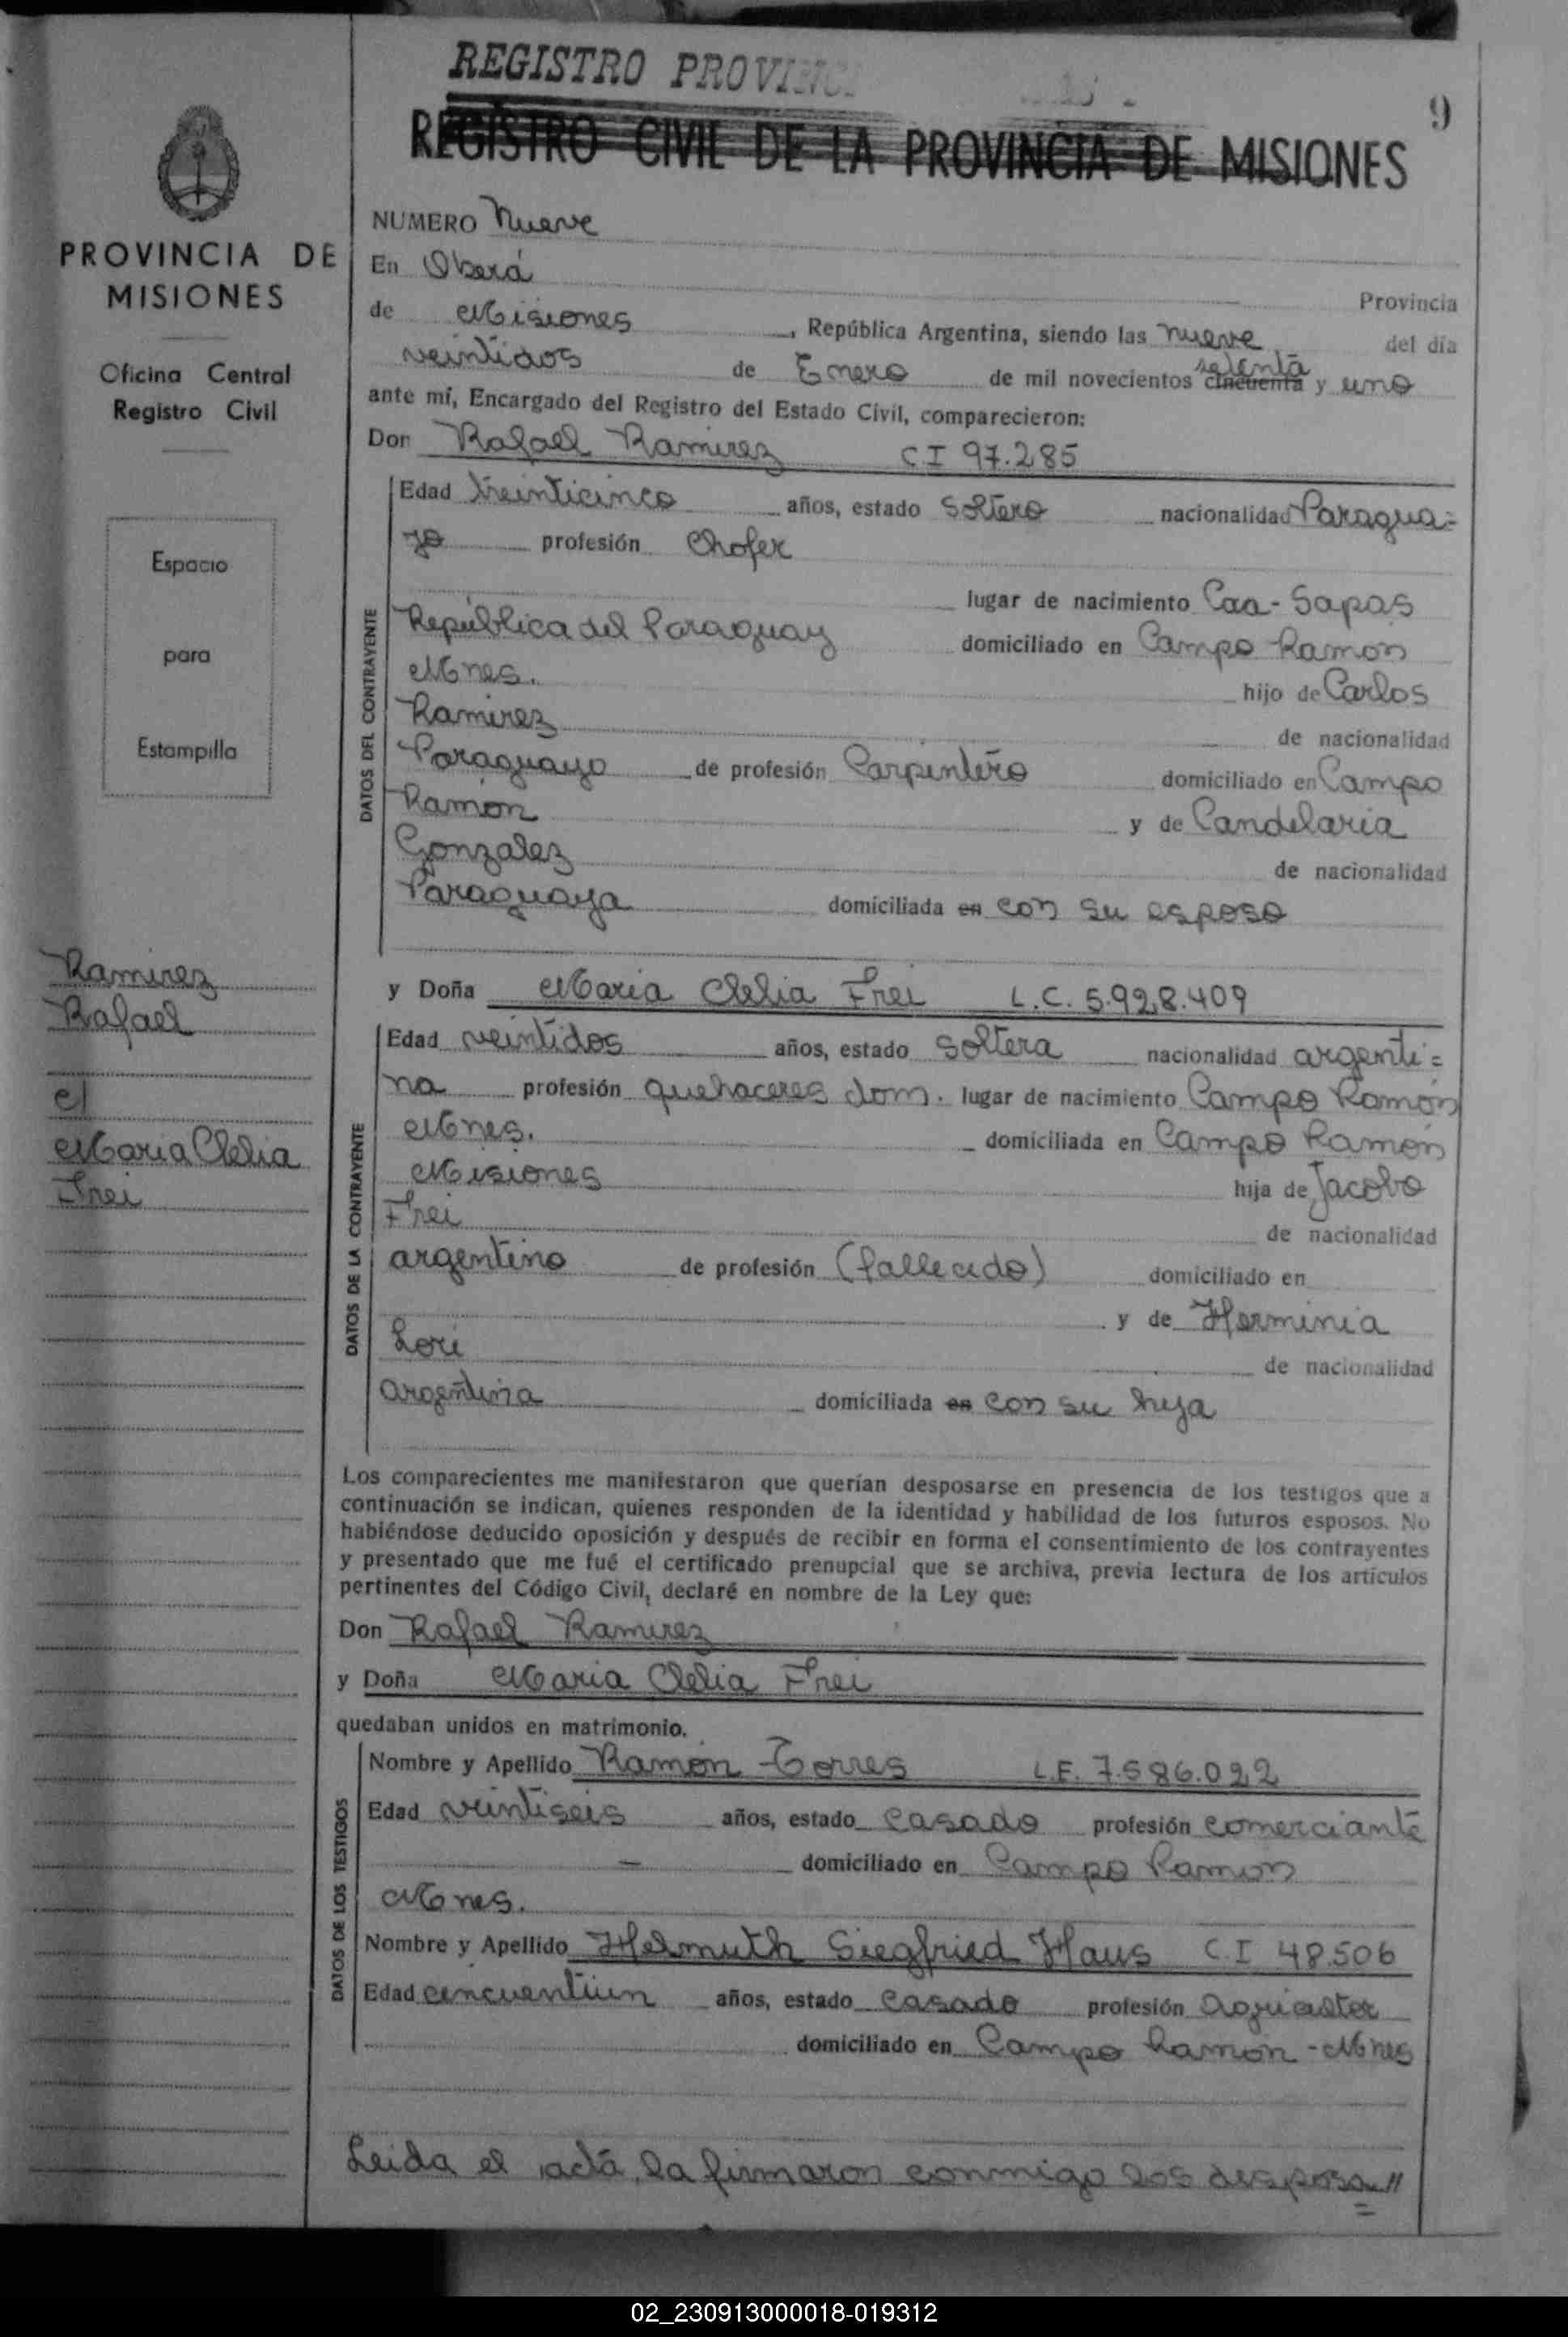 REGISTRO PROVINC
9
REGISTRO CIVIL DE LA PROVINCIA DE MISIONES
PROVINCIA DE
MISIONES
Oficina Central
Registro Civil
Espacio
para
Estampilla
Ramirez
Rafael
c/
Maria Clelia
Frei
NUMERO Nueve
En Oberá
Provincia
de Misiones, República Argentina, siendo las nueve del día
veintidos de Enero de mil novecientos cincuenta setenta y uno
ante mí, Encargado del Registro del Estado Civil, comparecieron:
Don Rafael Ramirez C I 97.285
DATOS DEL CONTRAYENTE
Edad treinticinco años, estado soltero nacionalidad Paragua=
yo profesión Chofer
lugar de nacimiento Caa-Sapas
República del Paraguay domiciliado en Campo Ramon
Mnes. hijo de Carlos
Ramirez de nacionalidad
Paraguayo de profesión Carpintero domiciliado en Campo
Ramon y de Candelaria
Gonzalez de nacionalidad
Paraguaya domiciliada en con su esposo
y Doña Maria Clelia Frei L.C. 5.928.409
DATOS DE LA CONTRAYENTE
Edad veintidos años, estado soltera nacionalidad argenti=
na profesión quehaceres dom. lugar de nacimiento Campo Ramón
Mnes. domiciliada en Campo Ramón
Misiones hija de Jacobo
Frei de nacionalidad
argentino de profesión (fallecido) domiciliado en
y de Herminia
Lori de nacionalidad
argentina domiciliada en con su hija
Los comparecientes me manifestaron que querían desposarse en presencia de los testigos que a
continuación se indican, quienes responden de la identidad y habilidad de los futuros esposos. No
habiéndose deducido oposición y después de recibir en forma el consentimiento de los contrayentes
y presentado que me fué el certificado prenupcial que se archiva, previa lectura de los artículos
pertinentes del Código Civil, declaré en nombre de la Ley que:
Don Rafael Ramirez
y Doña Maria Clelia Frei
quedaban unidos en matrimonio.
DATOS DE LOS TESTIGOS
Nombre y Apellido Ramón Torres L.E. 7.586.022
Edad veintiseis años, estado casado profesión comerciante
— domiciliado en Campo Ramon
Mnes.
Nombre y Apellido Helmuth Siegfried Haus C.I 48.506
Edad cincuentiun años, estado casado profesión agricultor
domiciliado en Campo Ramón - Mnes
Leida el acta, la firmaron conmigo los desposa=//
02_230913000018-019312